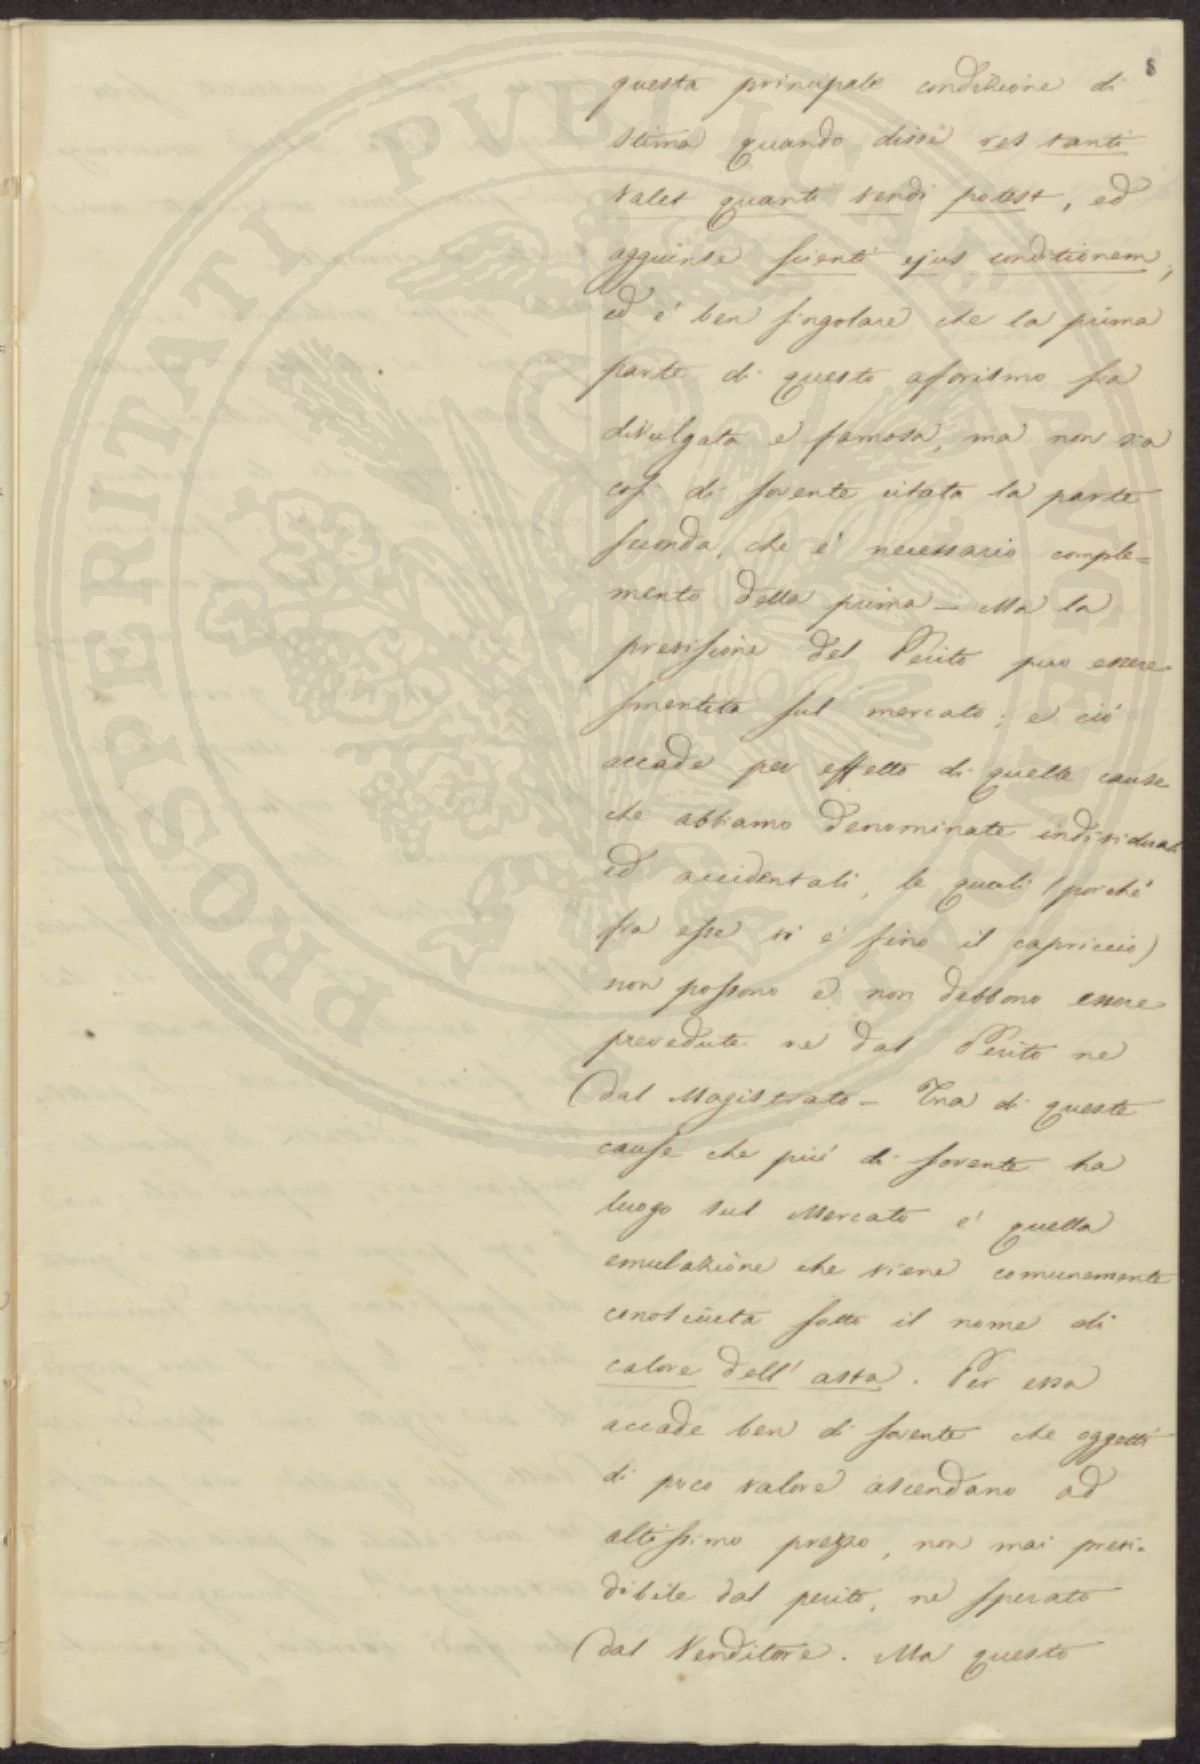 8
questa principale condizione di
stima quando disse res tanti
valet quanti vendi potest, ed
aggiunse scienti ejus conditionem,
ed è ben singolare che la prima
parte di questo aforismo sia
divulgata e famosa, ma non sia
così di sovente citata la parte
seconda, che è necessario comple=
mento della prima – Ma la
previsione del Perito può essere
smentita sul mercato; e ciò
accade per effetto di quelle cause
che abbiamo denominate individuali
ed accidentali, le quali (perchè
fra esse vi è fino il capriccio)
non possono e non debbono essere
prevedute nè dal Perito nè
dal Magistrato – Una di queste
cause che più di sovente ha
luogo sul Mercato è quella
emulazione che viene comunemente
conosciuta sotto il nome di
calore dell'asta. Per essa
accade ben di sovente che oggetti
di poco valore ascendano ad
altissimo prezzo, non mai previ=
dibile dal perito, nè sperato
dal Venditore. Ma questo
PROSPERITATI PVBLICAE AVGENDAE